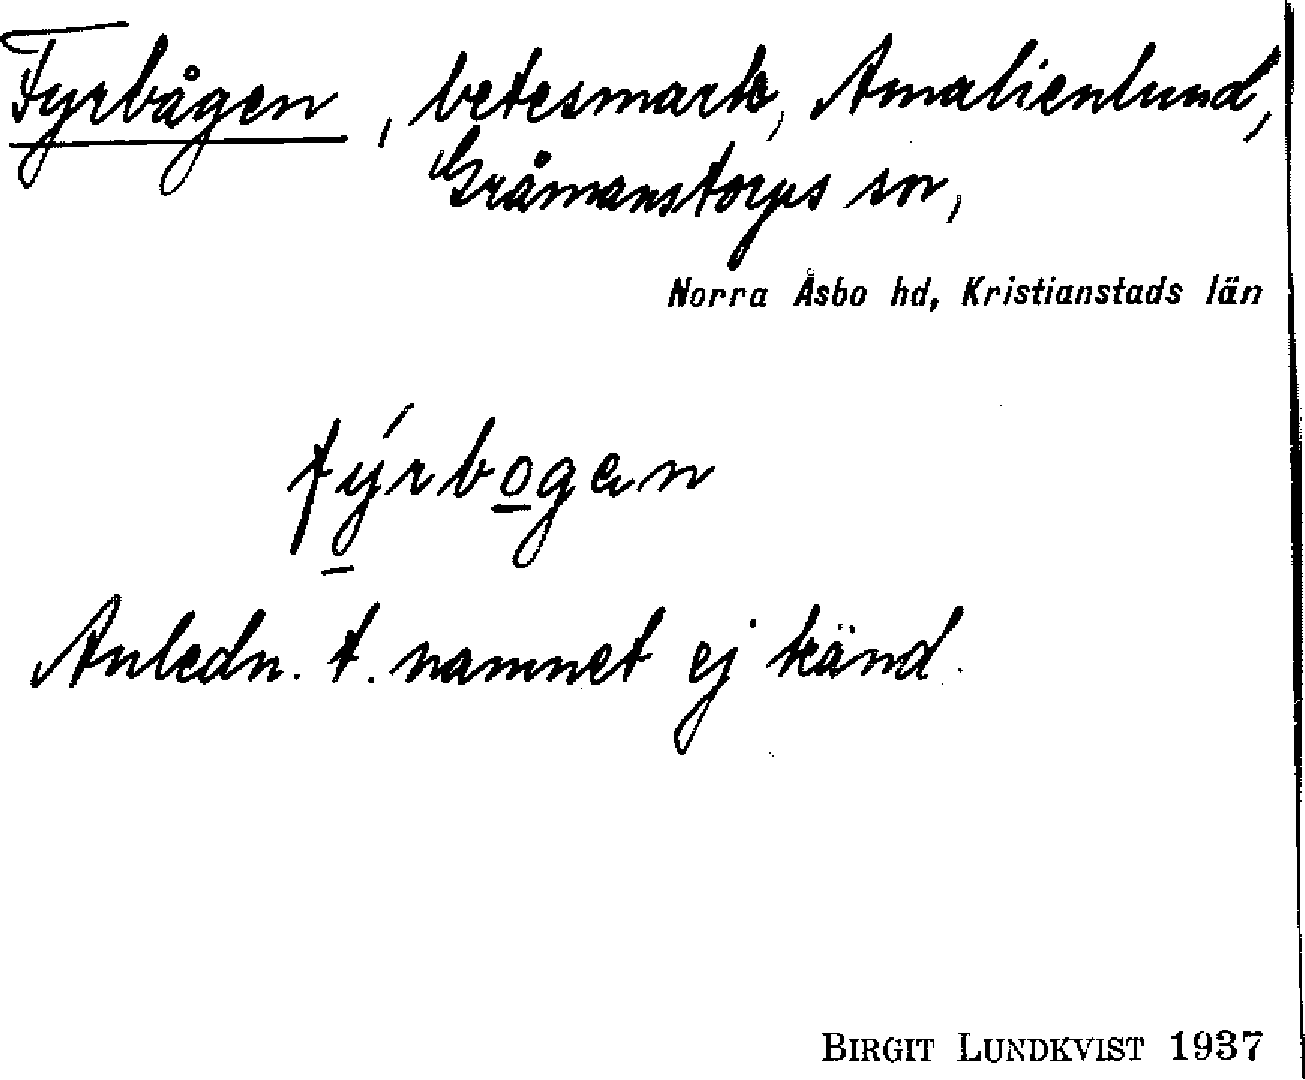 Fyrbågen, betesmark, Amalienlund,
Gråmanstorps sn,
Norra Åsbo hd, Kristianstads län
fý̱rbo̱gan
Anledn. t. namnet ej känd.
BIRGIT LUNDKVIST 1937